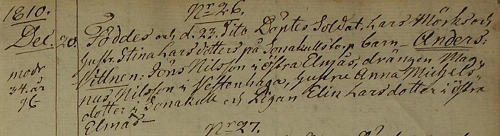 1810. Nr 26.
Dec. 20. Föddes och d. 23. Dito Döptes Soldat. Lars Mörks och
Hustr. Stina Larsdotters på Jonakulls torp barn – Anders.
modr Vittnen: Jöns Nilsson i Östra Elmås, drängen Mag-
34. år nus Nilsson i Vettenhaga, Hustru Anna Michels-
dotter i Jonakull och Pigan Elin Larsdotter i Östra
Elmås –
Nr 27.